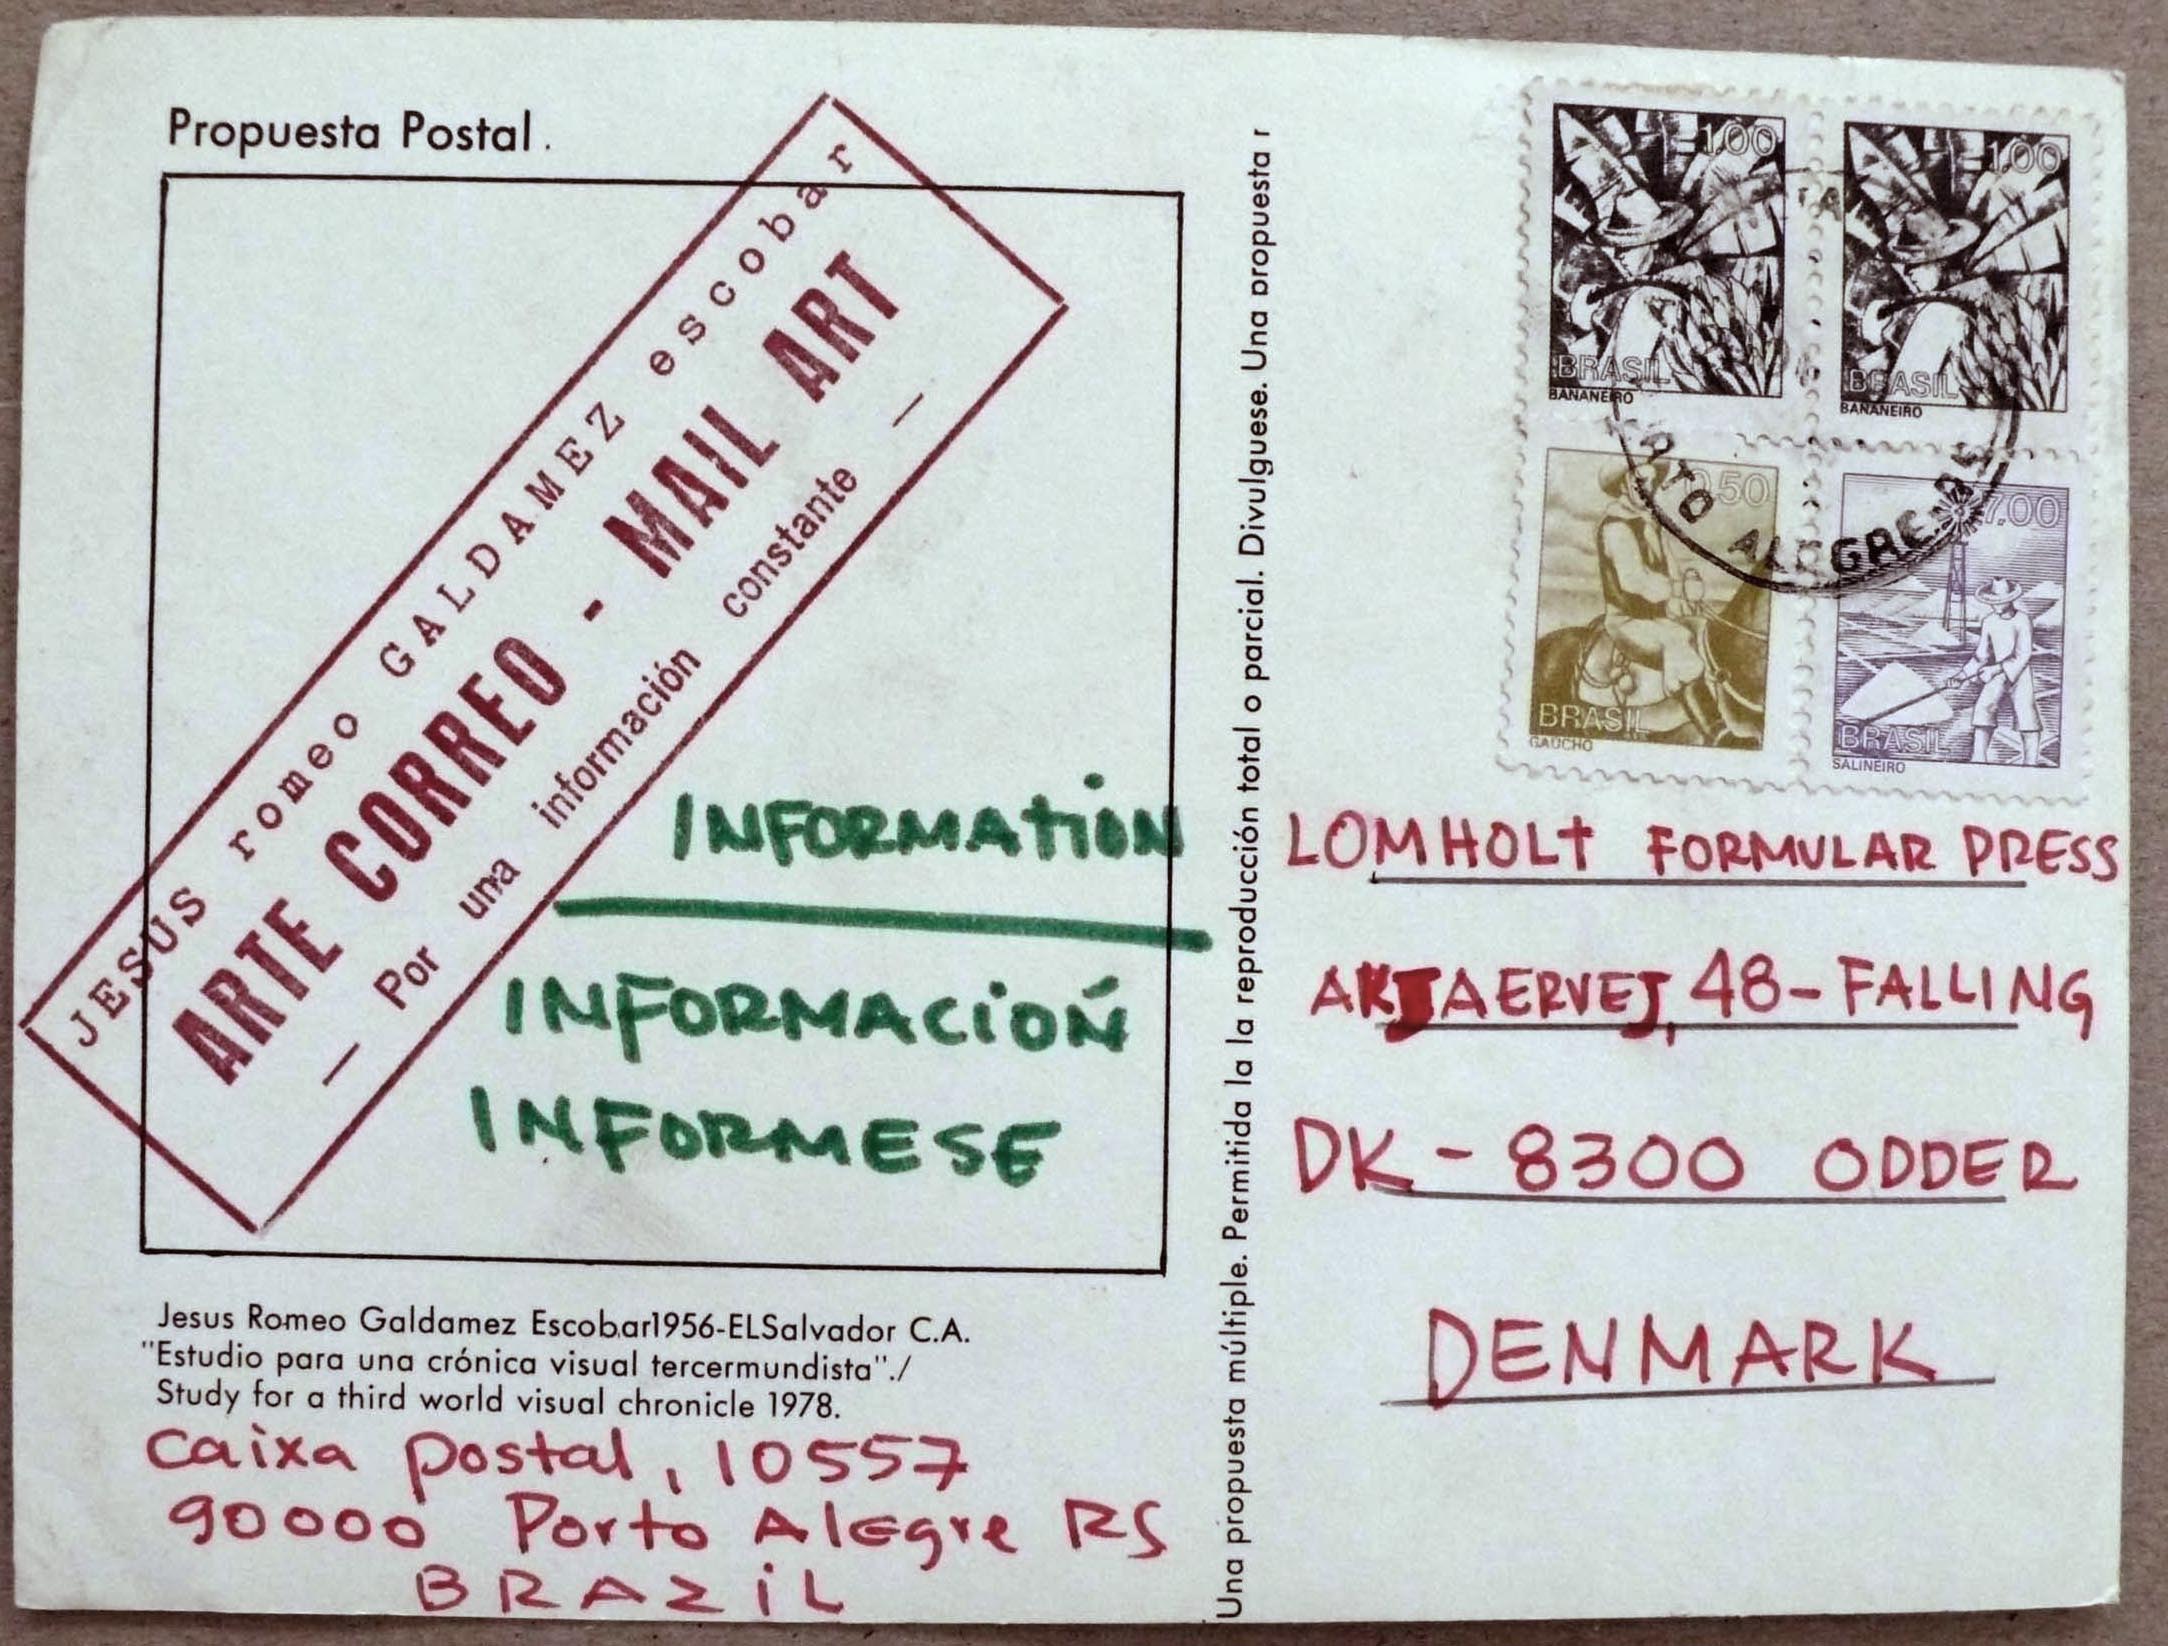 Propuesta Postal.
JESUS romeo GALDAMEZ escobar
ARTE CORREO - MAIL ART
— Por una información constante —
INFORMATION
INFORMACIOŃ
INFORMESE
Jesus Romeo Galdamez Escobar1956-ELSalvador C.A.
"Estudio para una crónica visual tercermundista"./
Study for a third world visual chronicle 1978.
caixa postal, 10557
90000 Porto Alegre RS
BRAZiL
Una propuesta múltiple. Permitida la la reproducción total o parcial. Divulguese. Una propuesta r
1,00
BRASIL
BANANEIRO
1,00
BRASIL
BANANEIRO
0,50
BRASIL
GAUCHO
7,00
BRASIL
SALINEIRO
RTO ALEGRE-RS
LOMHOLT FORMULAR PRESS
AKJAERVEJ, 48-FALLING
DK - 8300 ODDER
DENMARK